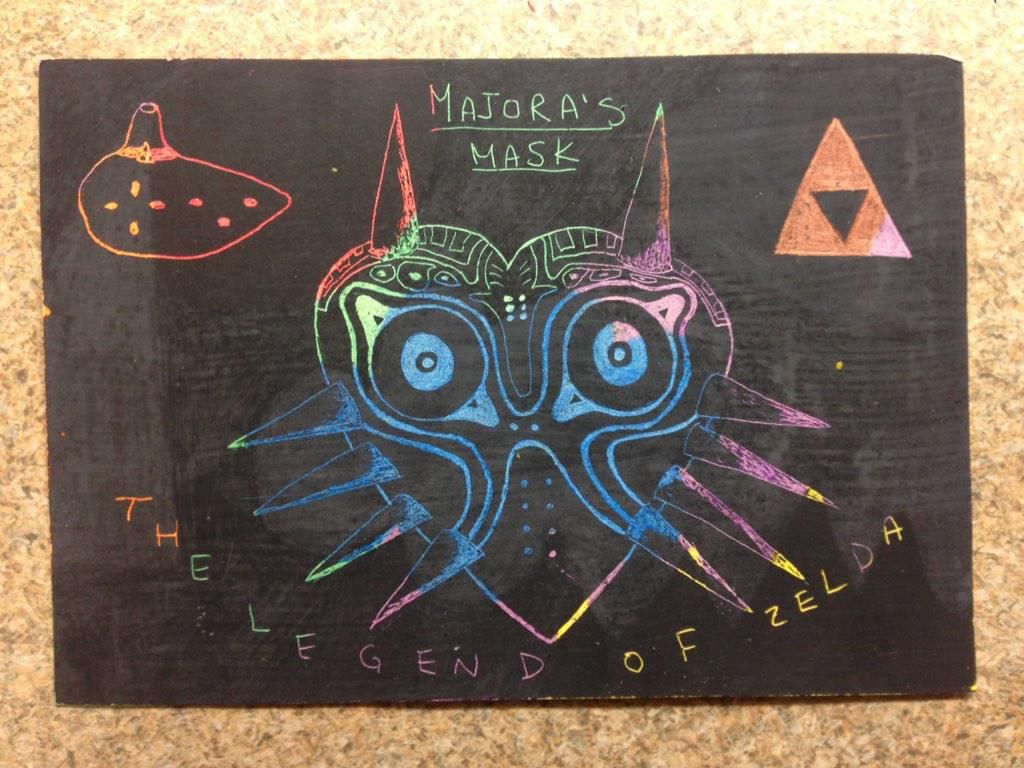 MAJORA'S
MASK
THE LEGEND OF ZELDA